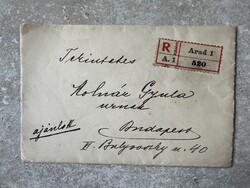 R Arad 1
A. 1 520
Tekintetes
Molnár Gyula
urnak
ajánlott Budapest
VI. Bulyovszky u. 40